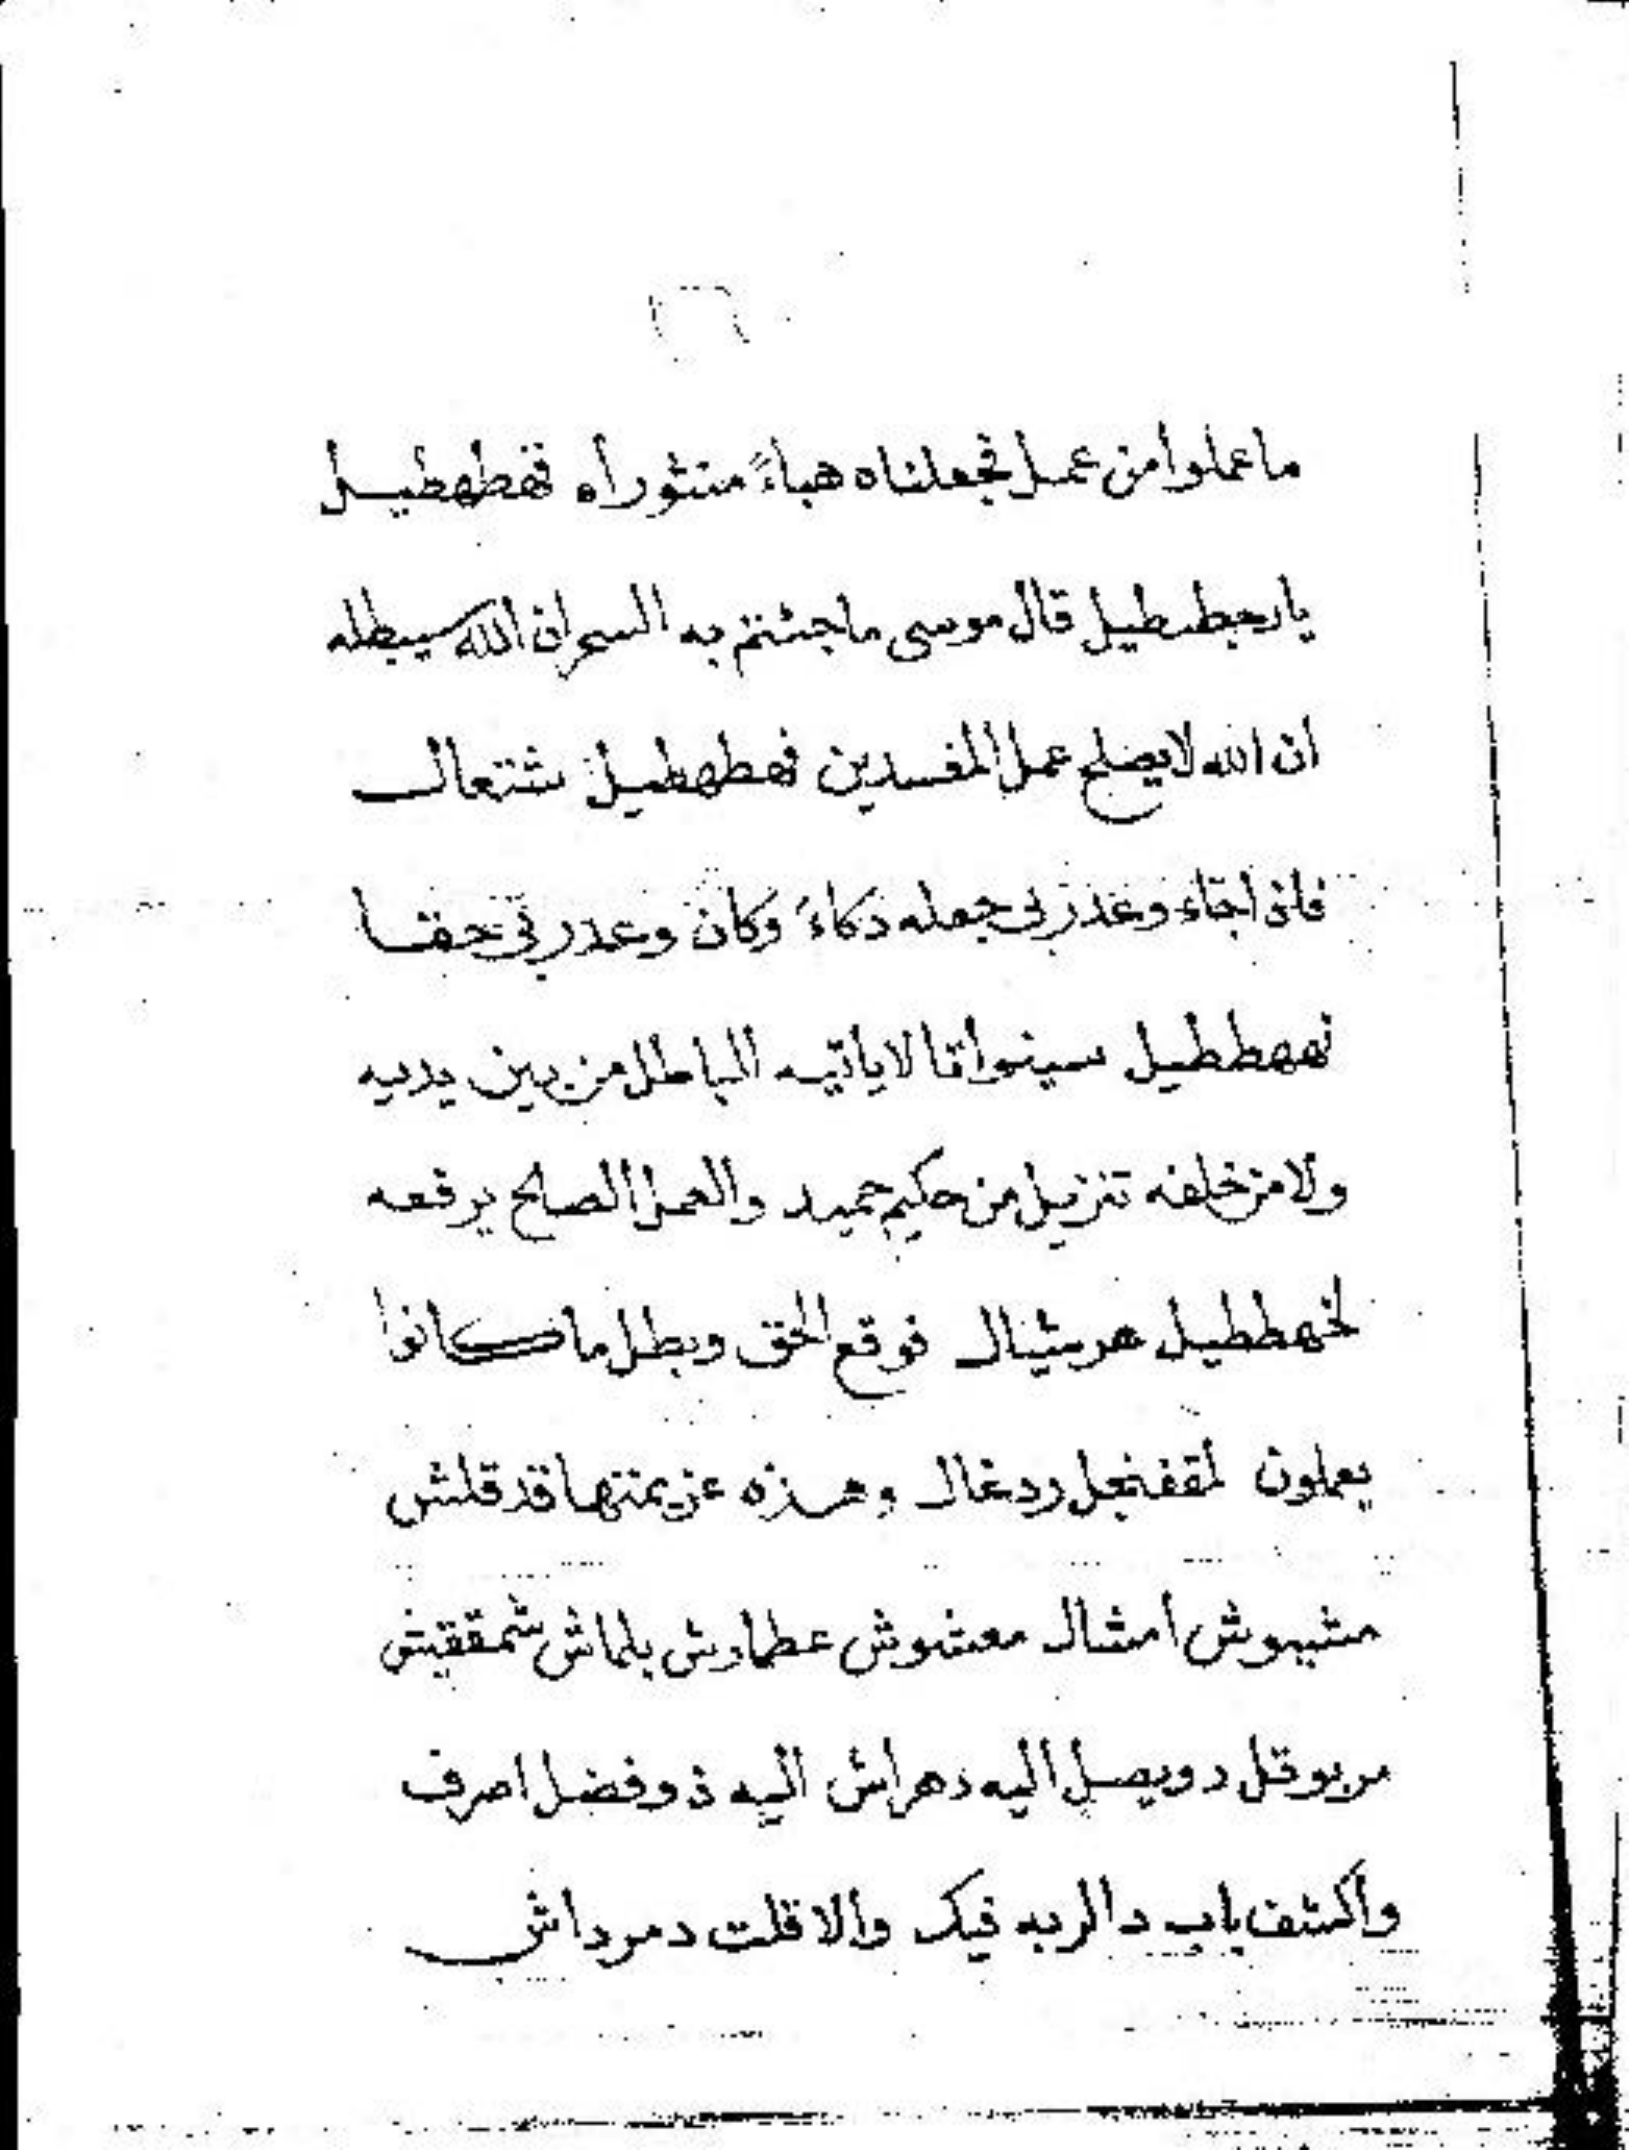 ما عملوا من عمل فجعلناه هباءً منثوراه فهطهطيل
قال موسى ما جئتم به السحر ان الله سيبطله
ان الله لا يصلح عمل المفسدين فهطهطيل شتعال
فاذا جاء وعد ربى جعله دكاءَ وكان وعد ربى حقا
نههططيل سينواتا لا ياتيه الباطل من بين يديه
ولا من خلفه تنزيل من حكيم حميد والعمل الصالح يرفعه
لخهططيل هرشيال فوقع الحق وبطل ما كانوا
يعملون لمقفنجل ردغال وهذه عزيمتها قد قلش
مشيهوش امشال معشوش عطاوش بلماش شمققيش
مربوقل دويصل اليه دهراش اليه ذو فضل اصرف
واكشف باب دالربه فيك والا قلت دمرداش